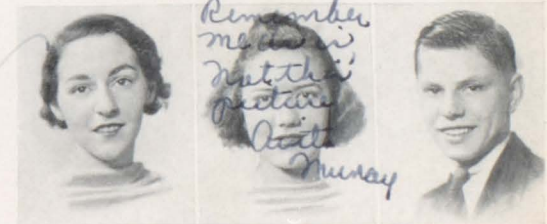 Remember
me as in
not this
picture
Murray